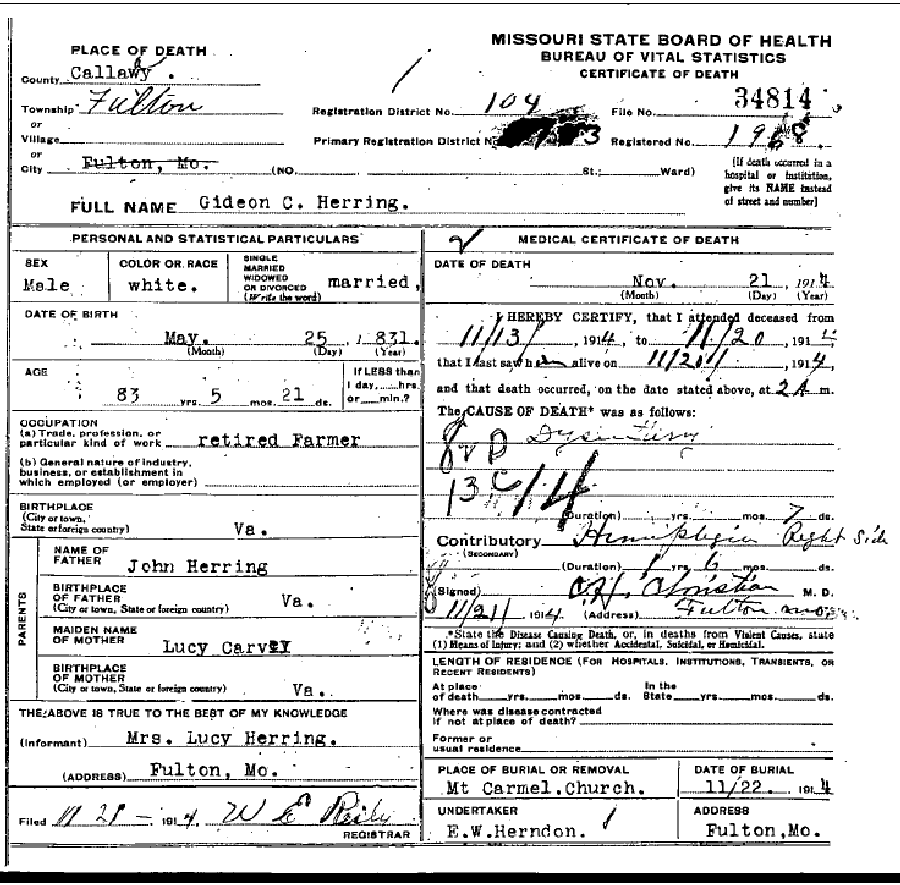 MISSOURI STATE BOARD OF HEALTH
BUREAU OF VITAL STATISTICS
CERTIFICATE OF DEATH
PLACE OF DEATH
County Callawy a .
Township Fulton
or
Village
or
City Fulton, Mo. (NO. St.; Ward)
Registration District No. 104 File No. 34814
Primary Registration District No. Registered No.
(If death occurred in a
hospital or institution,
give its NAME instead
of street and number)
FULL NAME Gideon C. Herring.
PERSONAL AND STATISTICAL PARTICULARS
SEX
Male
COLOR OR RACE
white.
SINGLE
MARRIED
WIDOWED
OR DIVORCED
(Write the word)
married,
DATE OF BIRTH
May. 25, 1831.
(Month) (Day) (Year)
AGE
83 yrs. 5 mos. 21 ds.
If LESS than
1 day,......hrs.
or......min.?
OCCUPATION
(a) Trade, profession, or
particular kind of work retired Farmer
(b) General nature of industry,
business, or establishment in
which employed (or employer)
BIRTHPLACE
(City or town,
State or foreign country) Va.
PARENTS
NAME OF
FATHER John Herring
BIRTHPLACE
OF FATHER
(City or town, State or foreign country) Va.
MAIDEN NAME
OF MOTHER Lucy Carvey
BIRTHPLACE
OF MOTHER
(City or town, State or foreign country) Va.
THE ABOVE IS TRUE TO THE BEST OF MY KNOWLEDGE
(Informant) Mrs. Lucy Herring.
(ADDRESS) Fulton, Mo.
Filed 11 21 - 1914 W E
REGISTRAR
2 MEDICAL CERTIFICATE OF DEATH
DATE OF DEATH
Nov. 21, 1914
(Month) (Day) (Year)
I HEREBY CERTIFY, that I attended deceased from
11/13, 1914, to 11/20, 1914
that I last saw him alive on 11/20, 1914,
and that death occurred, on the date stated above, at 2 A m.
The CAUSE OF DEATH* was as follows:
Dysentery
(Duration) yrs. mos. 7 ds.
Contributory Hemiplegia Right Side
(SECONDARY)
(Duration) 1 yrs. 6 mos. ds.
(Signed) Christian M. D.
11/21, 1914 (Address) Fulton Mo
*State the Disease Causing Death, or, in deaths from Violent Causes, state
(1) Means of Injury; and (2) whether Accidental, Suicidal, or Homicidal.
LENGTH OF RESIDENCE (FOR HOSPITALS, INSTITUTIONS, TRANSIENTS, OR
RECENT RESIDENTS)
At place In the
of death yrs. mos. ds. State yrs. mos. ds.
Where was disease contracted
If not at place of death?
Former or
usual residence
PLACE OF BURIAL OR REMOVAL
Mt Carmel.Church.
DATE OF BURIAL
11/22. 1914
UNDERTAKER
E.W.Herndon.
ADDRESS
Fulton,Mo.